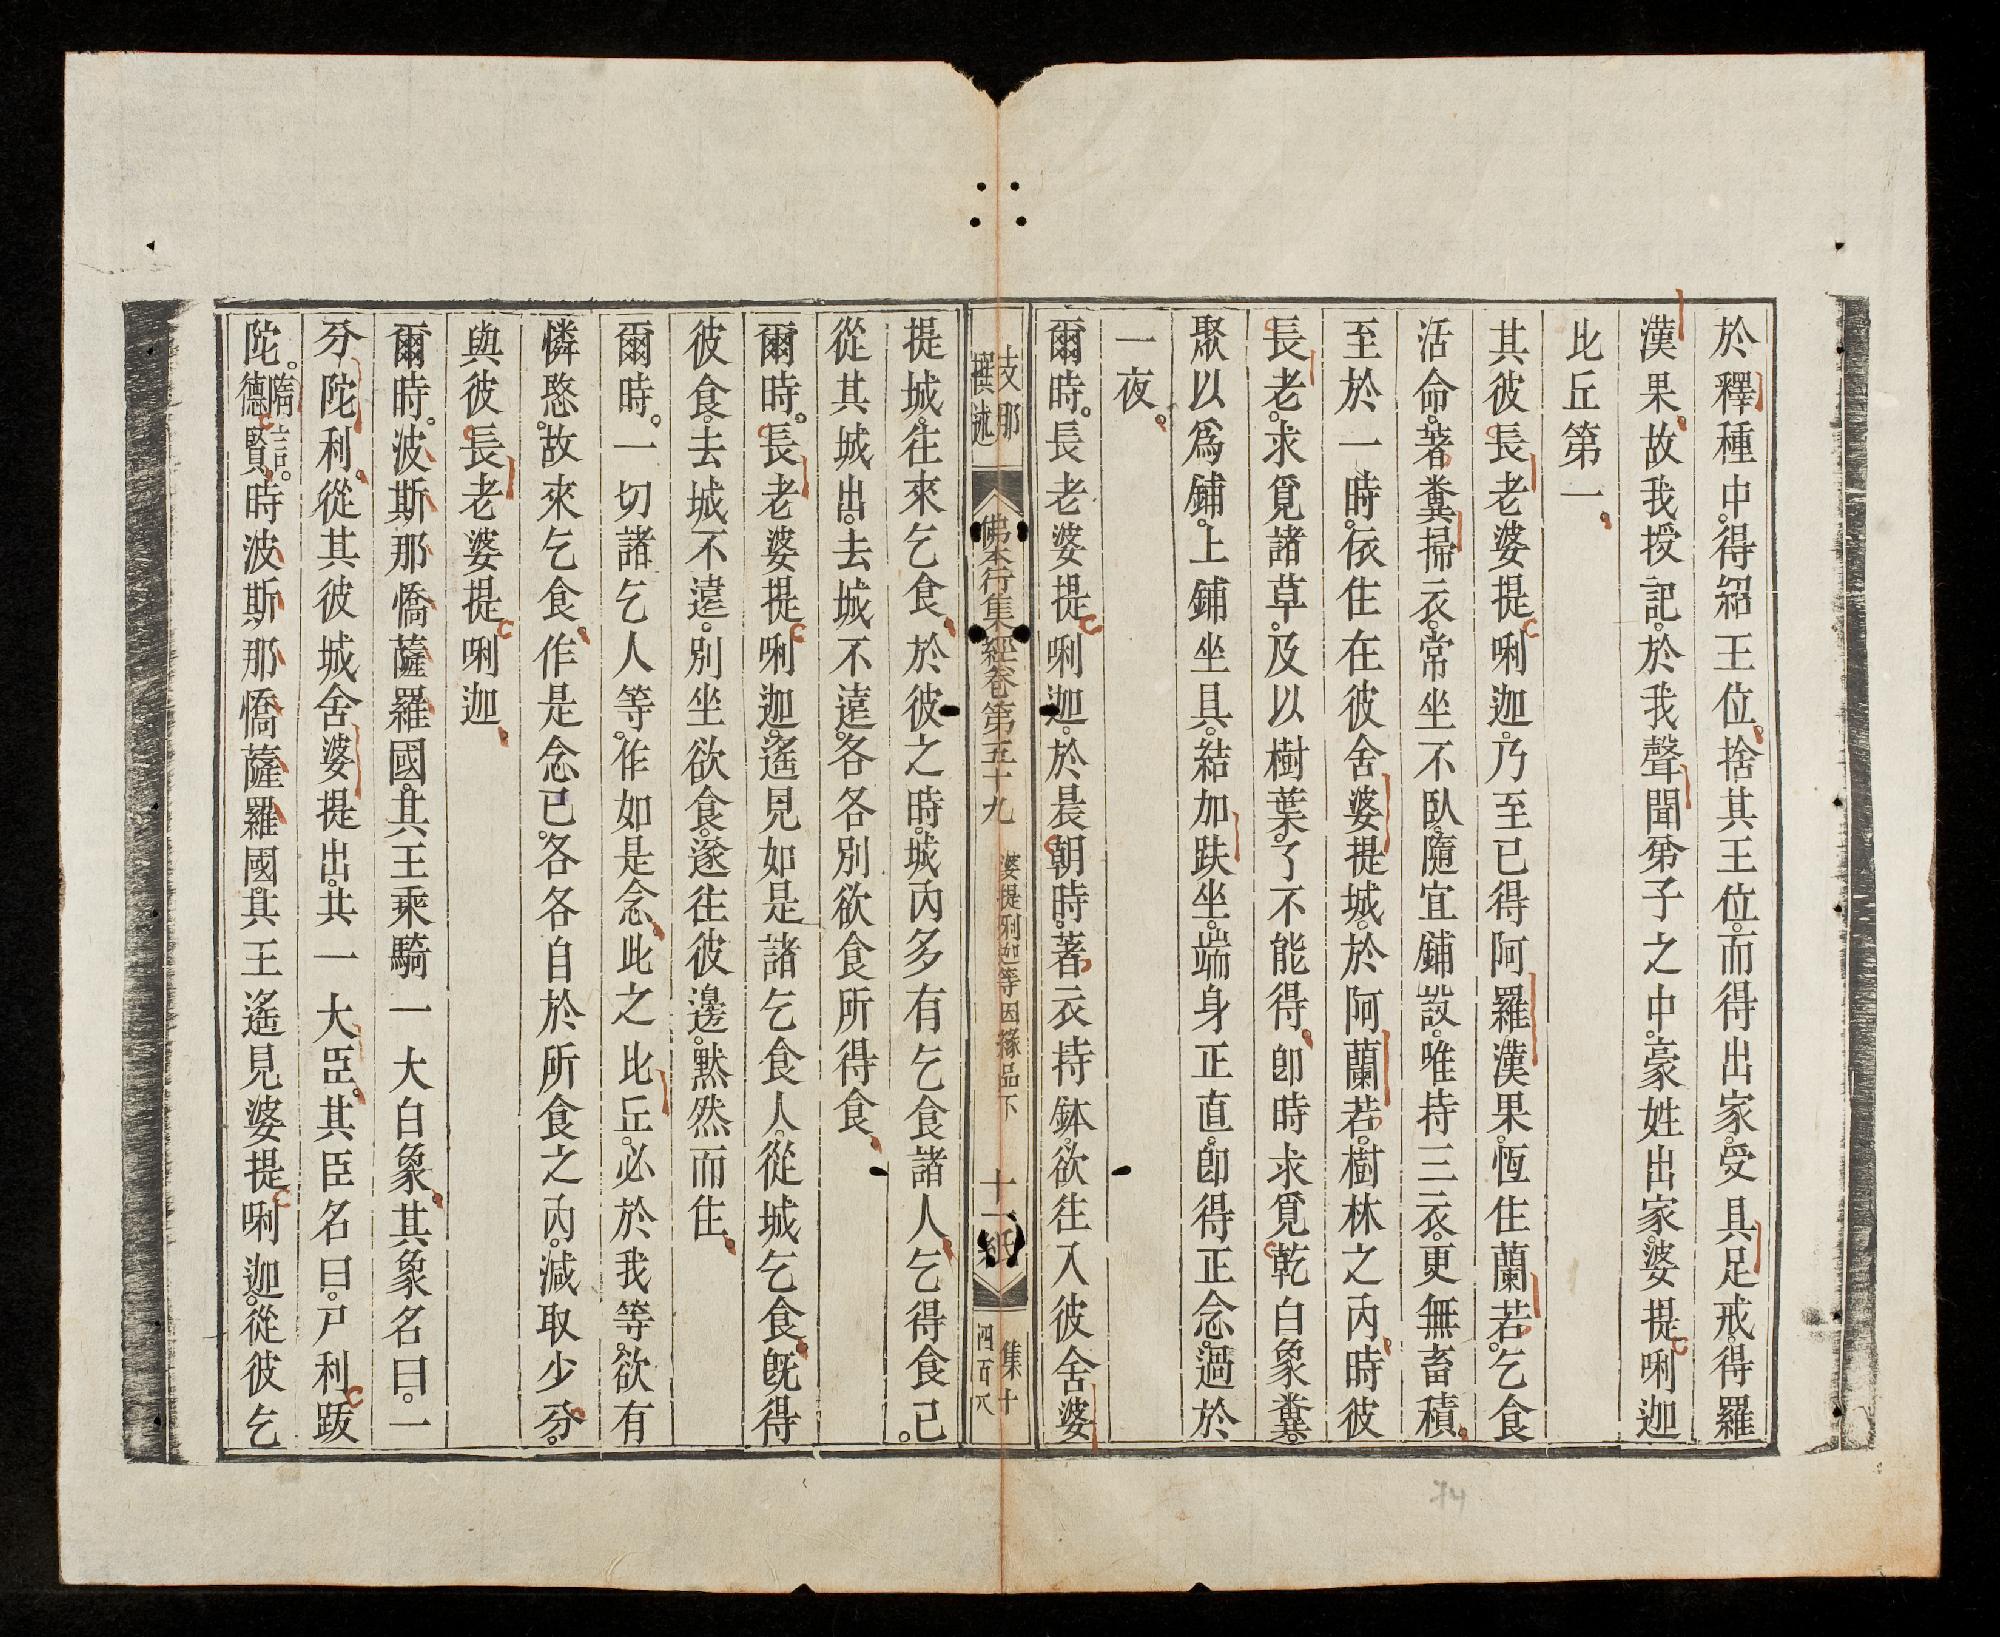 於釋種中。得紹王位。捨其王位。而得出家。受具足戒。得羅
漢果。故我授記。於我聲聞弟子之中。豪姓出家。婆提唎迦
比丘第一。
其彼長老婆提唎迦。乃至已得阿羅漢果。恆住蘭若。乞食
活命。著糞掃衣。常坐不臥。隨宜鋪設。唯持三衣。更無畜積。
至於一時。依住在彼舍婆提城。於阿蘭若。樹林之內。時彼
長老。求覓諸草。及以樹葉。了不能得。卽時求覓乾白象糞。
聚以爲鋪。上鋪坐具。結加趺坐。端身正直。卽得正念。過於
一夜。
爾時。長老婆提唎迦。於晨朝時。著衣持鉢。欲往入彼舍婆
支那
撰述
佛本行集經卷第五十九
婆提唎迦等因緣品下
十一紙
集十
四百八
提城。往來乞食。於彼之時。城內多有乞食諸人。乞得食已。
從其城出。去城不遠。各各別欲食所得食。
爾時。長老婆提唎迦。遙見如是諸乞食人。從城乞食。旣得
彼食。去城不遠。別坐欲食。遂往彼邊。默然而住。
爾時。一切諸乞人等。作如是念。此之比丘。必於我等。欲有
憐愍。故來乞食。作是念已。各各自於所食之內。減取少分。
與彼長老婆提唎迦。
爾時。波斯那憍薩羅國。其王乘騎一大白象。其象名曰。一
分陀利。從其彼城舍婆提出。共一大臣。其臣名曰。尸利跋
陀。隋言。德賢。時波斯那憍薩羅國。其王遙見婆提唎迦。從彼乞
74